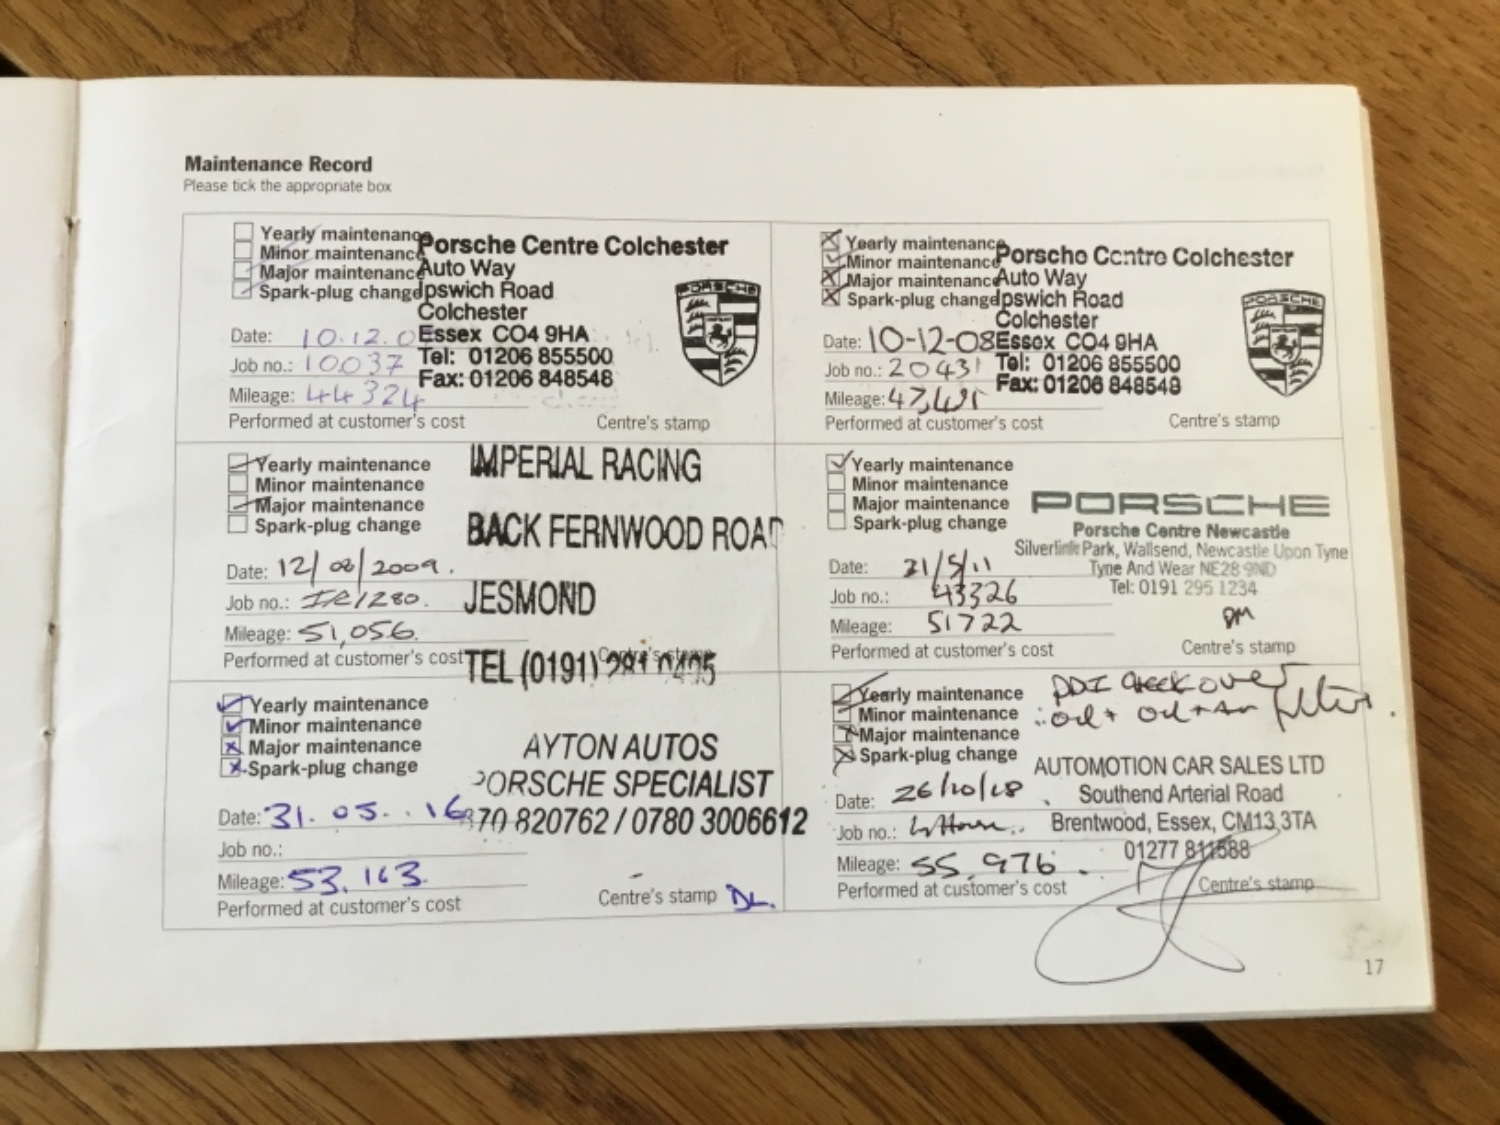 Maintenance Record
Please tick the appropriate box
Yearly maintenance
Minor maintenance
Major maintenance
Spark-plug change
Porsche Centre Colchester
Auto Way
Ipswich Road
Colchester
Essex CO4 9HA
Tel: 01206 855500
Fax: 01206 848548
PORSCHE
Date: 10.12.0
Job no.: 10037
Mileage: 44324
Performed at customer's cost
Centre's stamp
Yearly maintenance
Minor maintenance
Major maintenance
Spark-plug change
Porsche Centre Colchester
Auto Way
Ipswich Road
Colchester
Essex CO4 9HA
Tel: 01206 855500
Fax: 01206 848548
PORSCHE
Date: 10-12-08
Job no.: 20431
Mileage:
Performed at customer's cost
Centre's stamp
Yearly maintenance
Minor maintenance
Major maintenance
Spark-plug change
IMPERIAL RACING
BACK FERNWOOD ROAD
JESMOND
TEL (0191) 281 0405
Date: 12/08/2009.
Job no.: IR1280.
Mileage: 51,056.
Performed at customer's cost
Centre's stamp
Yearly maintenance
Minor maintenance
Major maintenance
Spark-plug change
PORSCHE
Porsche Centre Newcastle
Silverlink Park, Wallsend, Newcastle Upon Tyne
Tyne And Wear NE28 9ND
Tel: 0191 295 1234
Date: 31/5/11
Job no.: 43326
Mileage: 51722
Performed at customer's cost
Centre's stamp
Yearly maintenance
Minor maintenance
Major maintenance
Spark-plug change
AYTON AUTOS
PORSCHE SPECIALIST
870 820762 / 0780 3006612
Date: 31.05.16
Job no.:
Mileage: 53.163.
Performed at customer's cost
Centre's stamp DL.
Yearly maintenance
Minor maintenance
Major maintenance
Spark-plug change
PDI check over
oil + oil + Air filter.
AUTOMOTION CAR SALES LTD
Southend Arterial Road
Brentwood, Essex, CM13 3TA
01277 811588
Date: 26/10/18
Job no.: In House..
Mileage: 55,976.
Performed at customer's cost
Centre's stamp
17